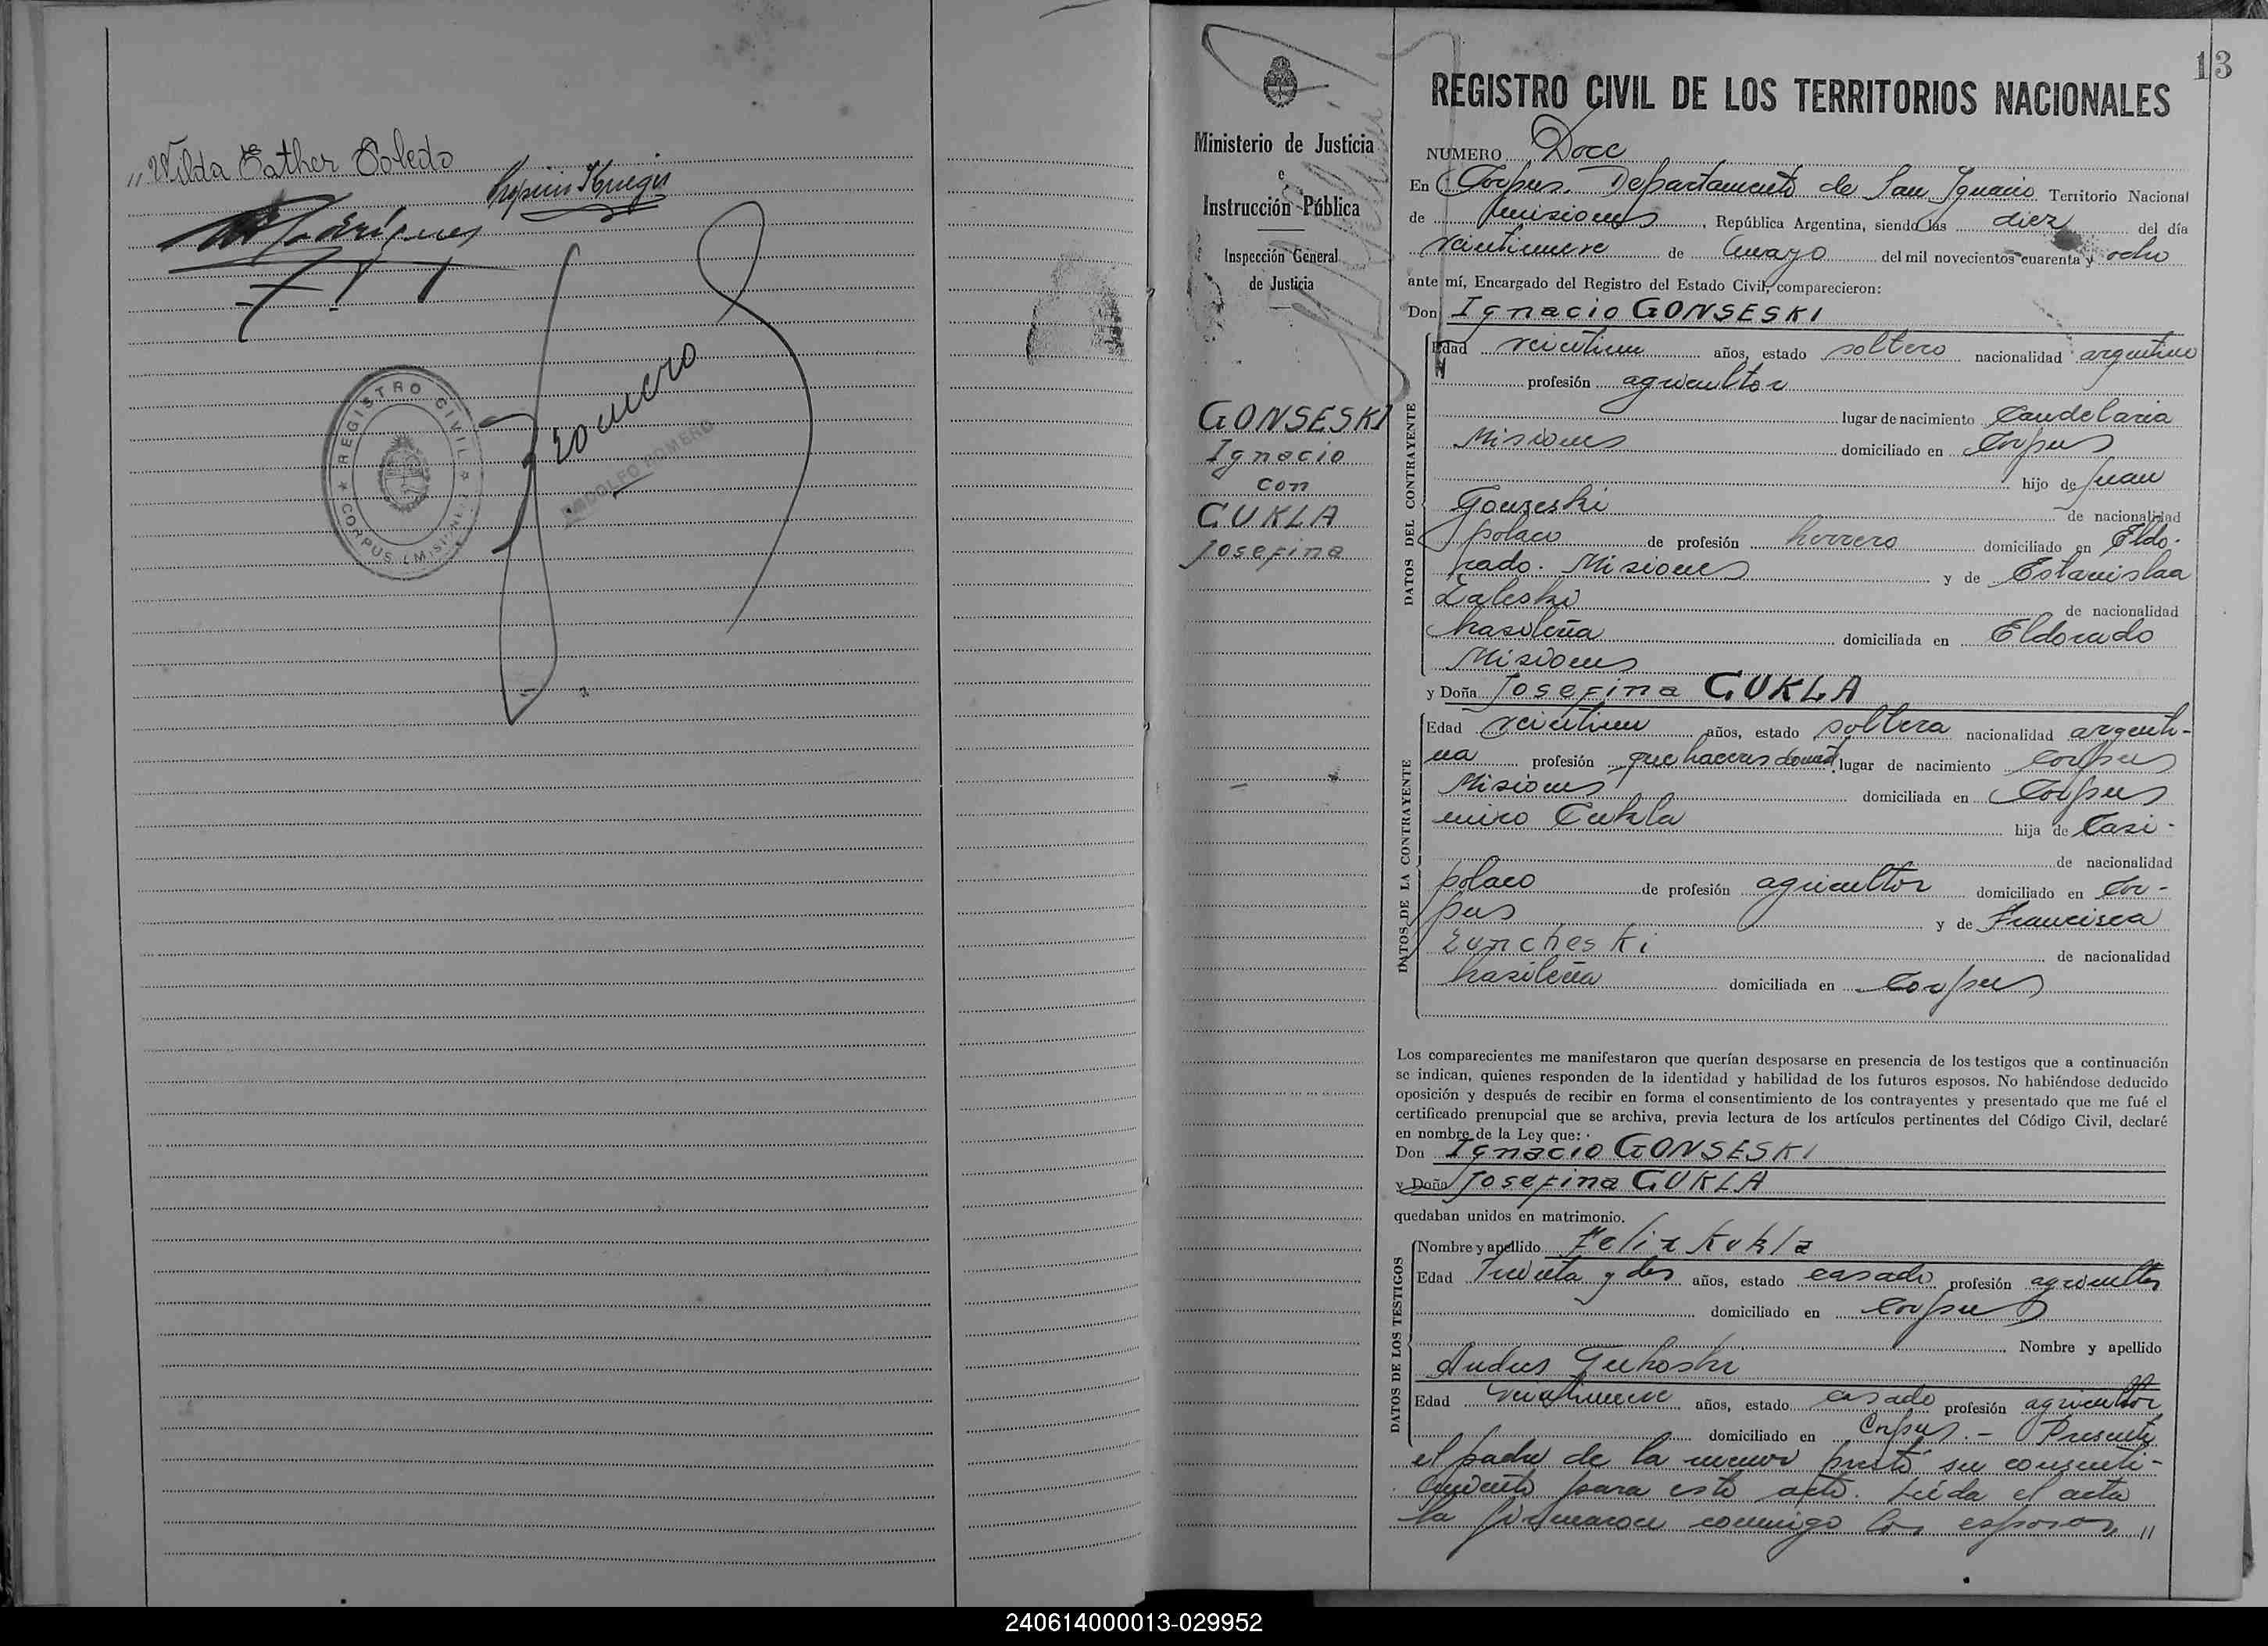 "Wilda Esther Toledo
REGISTRO CIVIL
CORPUS (MISIONES)
Romero
RODOLFO ROMERO
13
Ministerio de Justicia
e
Instrucción Pública
Inspección General
de Justicia
GONSESKI
Ignacio
con
CUKLA
Josefina
REGISTRO CIVIL DE LOS TERRITORIOS NACIONALES
NUMERO Doce
En Corpus. Departamento de San Ignacio Territorio Nacional
de Misiones, República Argentina, siendo las diez del día
veintinueve de mayo del mil novecientos cuarenta y ocho
ante mí, Encargado del Registro del Estado Civil, comparecieron:
Don Ignacio GONSESKI
DATOS DEL CONTRAYENTE
Edad veintiun años, estado soltero nacionalidad argentino
profesión agricultor
lugar de nacimiento Candelaria
Misiones domiciliado en Corpus
hijo de Juan
Gonseski de nacionalidad
polaco de profesión herrero domiciliado en Eldo-
rado. Misiones y de Estanislaa
Zaleski de nacionalidad
brasileña domiciliada en Eldorado
Misiones
y Doña Josefina CUKLA
DATOS DE LA CONTRAYENTE
Edad veintiun años, estado soltera nacionalidad argenti-
na profesión quehaceres domést. lugar de nacimiento Corpus
Misiones domiciliada en Corpus
miro Cukla hija de Casi-
de nacionalidad
polaco de profesión agricultor domiciliado en Cor-
pus y de Francisca
Zuncheski de nacionalidad
brasileña domiciliada en Corpus
Los comparecientes me manifestaron que querían desposarse en presencia de los testigos que a continuación
se indican, quienes responden de la identidad y habilidad de los futuros esposos. No habiéndose deducido
oposición y después de recibir en forma el consentimiento de los contrayentes y presentado que me fué el
certificado prenupcial que se archiva, previa lectura de los artículos pertinentes del Código Civil, declaré
en nombre de la Ley que:
Don Ignacio GONSESKI
y Doña Josefina CUKLA
quedaban unidos en matrimonio.
DATOS DE LOS TESTIGOS
Nombre y apellido Felix Kukla
Edad Treinta y dos años, estado casado profesión agricultor
domiciliado en Corpus
Nombre y apellido
Andres Gukoski
Edad veintinueve años, estado casado profesión agricultor
domiciliado en Corpus.- Presente
el padre de la menor prestó su consenti-
miento para este acto. Leída el acta
la firmaron conmigo los esposos, //
240614000013-029952